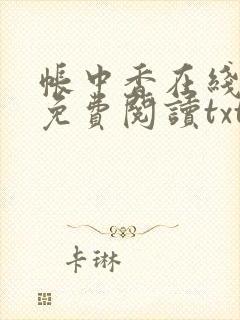 帳中香在綫
免費閱讀txt
卡琳